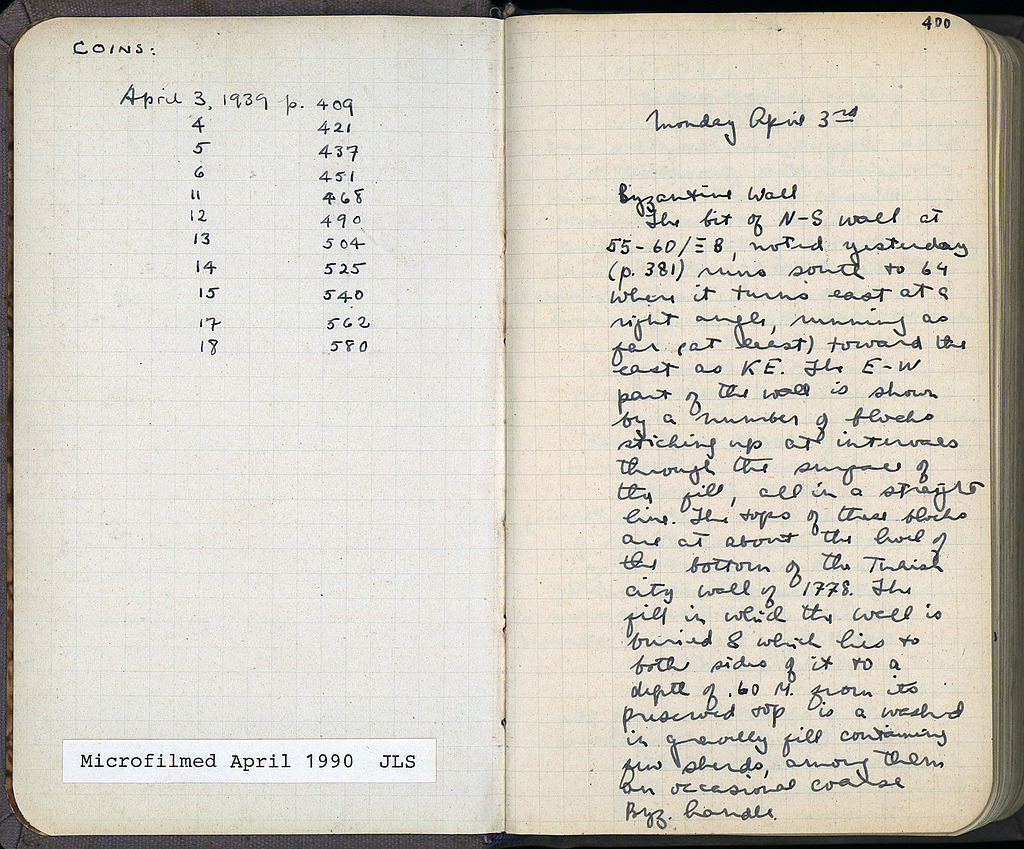 COINS:
April 3, 1939 p. 409
4 421
5 437
6 451
11 468
12 490
13 504
14 525
15 540
17 562
18 580
Microfilmed April 1990 JLS
400
Monday April 3rd
Byzantine Wall
The bit of N-S wall at
55-60/Ξ 8, noted yesterday
(p. 381) runs south to 64
where it turns east at a
right angle, running as
far (at least) toward the
east as KE. The E-W
part of the wall is shown
by a number of blocks
sticking up at intervals
through the surface of
the fill, all in a straight
line. The tops of these blocks
are at about the level of
the bottom of the Turkish
city wall of 1778. The
fill in which the wall is
buried & which lies to
both sides of it to a
depth of .60 M. from its
preserved top is a washed
in gravelly fill containing
few sherds, among them
an occasional coarse
Byz. handle.